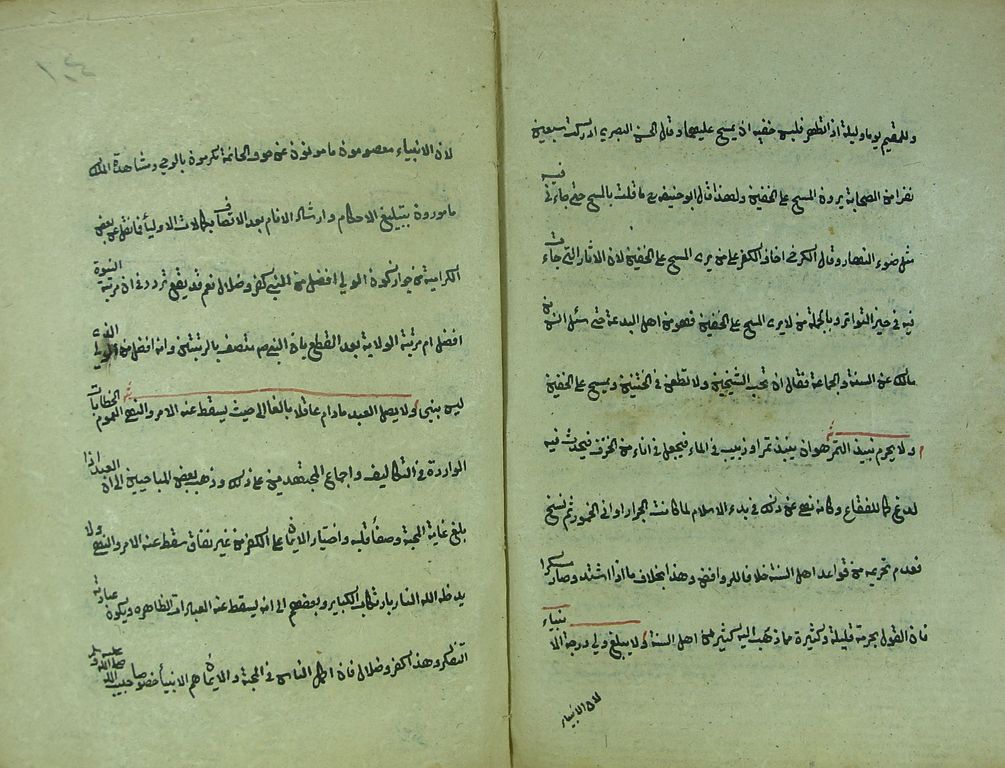 وللمقيم يوما وليلة اذا تطهر فلبس خفيه ان يمسح عليهما وقال الحسن البصري ادركت سبعين
نفرا من الصحابة يرون المسح على الخفين ولهذا قال ابو حنيفة ما قلت بالمسح حتى جاءني فيه
مثل ضوء النهار وقال الكرخي اخاف الكفر على من يرى المسح على الخفين لان الاثار التي جاءت
فيه في حيز التواتر وبالجملة من لا يرى المسح على الخفين فهو من اهل البدعة حتى سئل انس بن
مالك عن السنة والجماعة فقال ان تحب الشيخين ولا تطعن في الختنين وتمسح على الخفين
ولا يحرم نبيذ التمر هو ان ينبذ تمر او زبيب في الماء فيجعل في اناء من الخزف فيحدث فيه
لدغ كما للفقاع وكانه نهى عن ذلك في بدء الاسلام لما كانت الجرار اواني الخمور ثم نسخ
فعدم تحريمه من قواعد اهل السنة خلافا للروافض وهذا بخلاف ما اذا اشتد وصار مسكرا
فان القول بحرمة قليله وكثيره مما ذهب اليه كثير من اهل السنة ولا يبلغ ولي درجة الانبياء
لان الانبياء
١٠٤
لان الانبياء معصومون مامونون عن خوف الخاتمة مكرمون بالوحي ومشاهدة الملك
مامورون بتبليغ الاحكام وارشاد الانام بعد الاتصاف بكمالات الاولياء فما نقل عن بعض
الكرامية من جواز كون الولي افضل من النبي كفر وضلال نعم قد يقع تردد في ان مرتبة النبوة
افضل ام مرتبة الولاية بعد القطع بان النبي صم متصف بالرتبتين وانه افضل من الولي الذي
ليس بنبي ولا يصل العبد مادام عاقلا بالغا الى حيث يسقط عنه الامر والنهي لعموم الخطابات
الواردة في التكاليف واجماع المجتهدين على ذلك وذهب بعض المباحيين الى ان العبد اذا
بلغ غاية المحبة وصفا قلبه واختيار الايمان على الكفر من غير نفاق سقط عنه الامر والنهي ولا
يدخله الله النار بارتكاب الكبائر وبعضهم الى انه يسقط عنه العبادات الظاهره ويكون عبادته
التفكر وهذا كفر وضلال فان اكمل الناس في المحبة والايمان هم الانبياء خصوصا حبيب الله صلى الله عليه وسلم